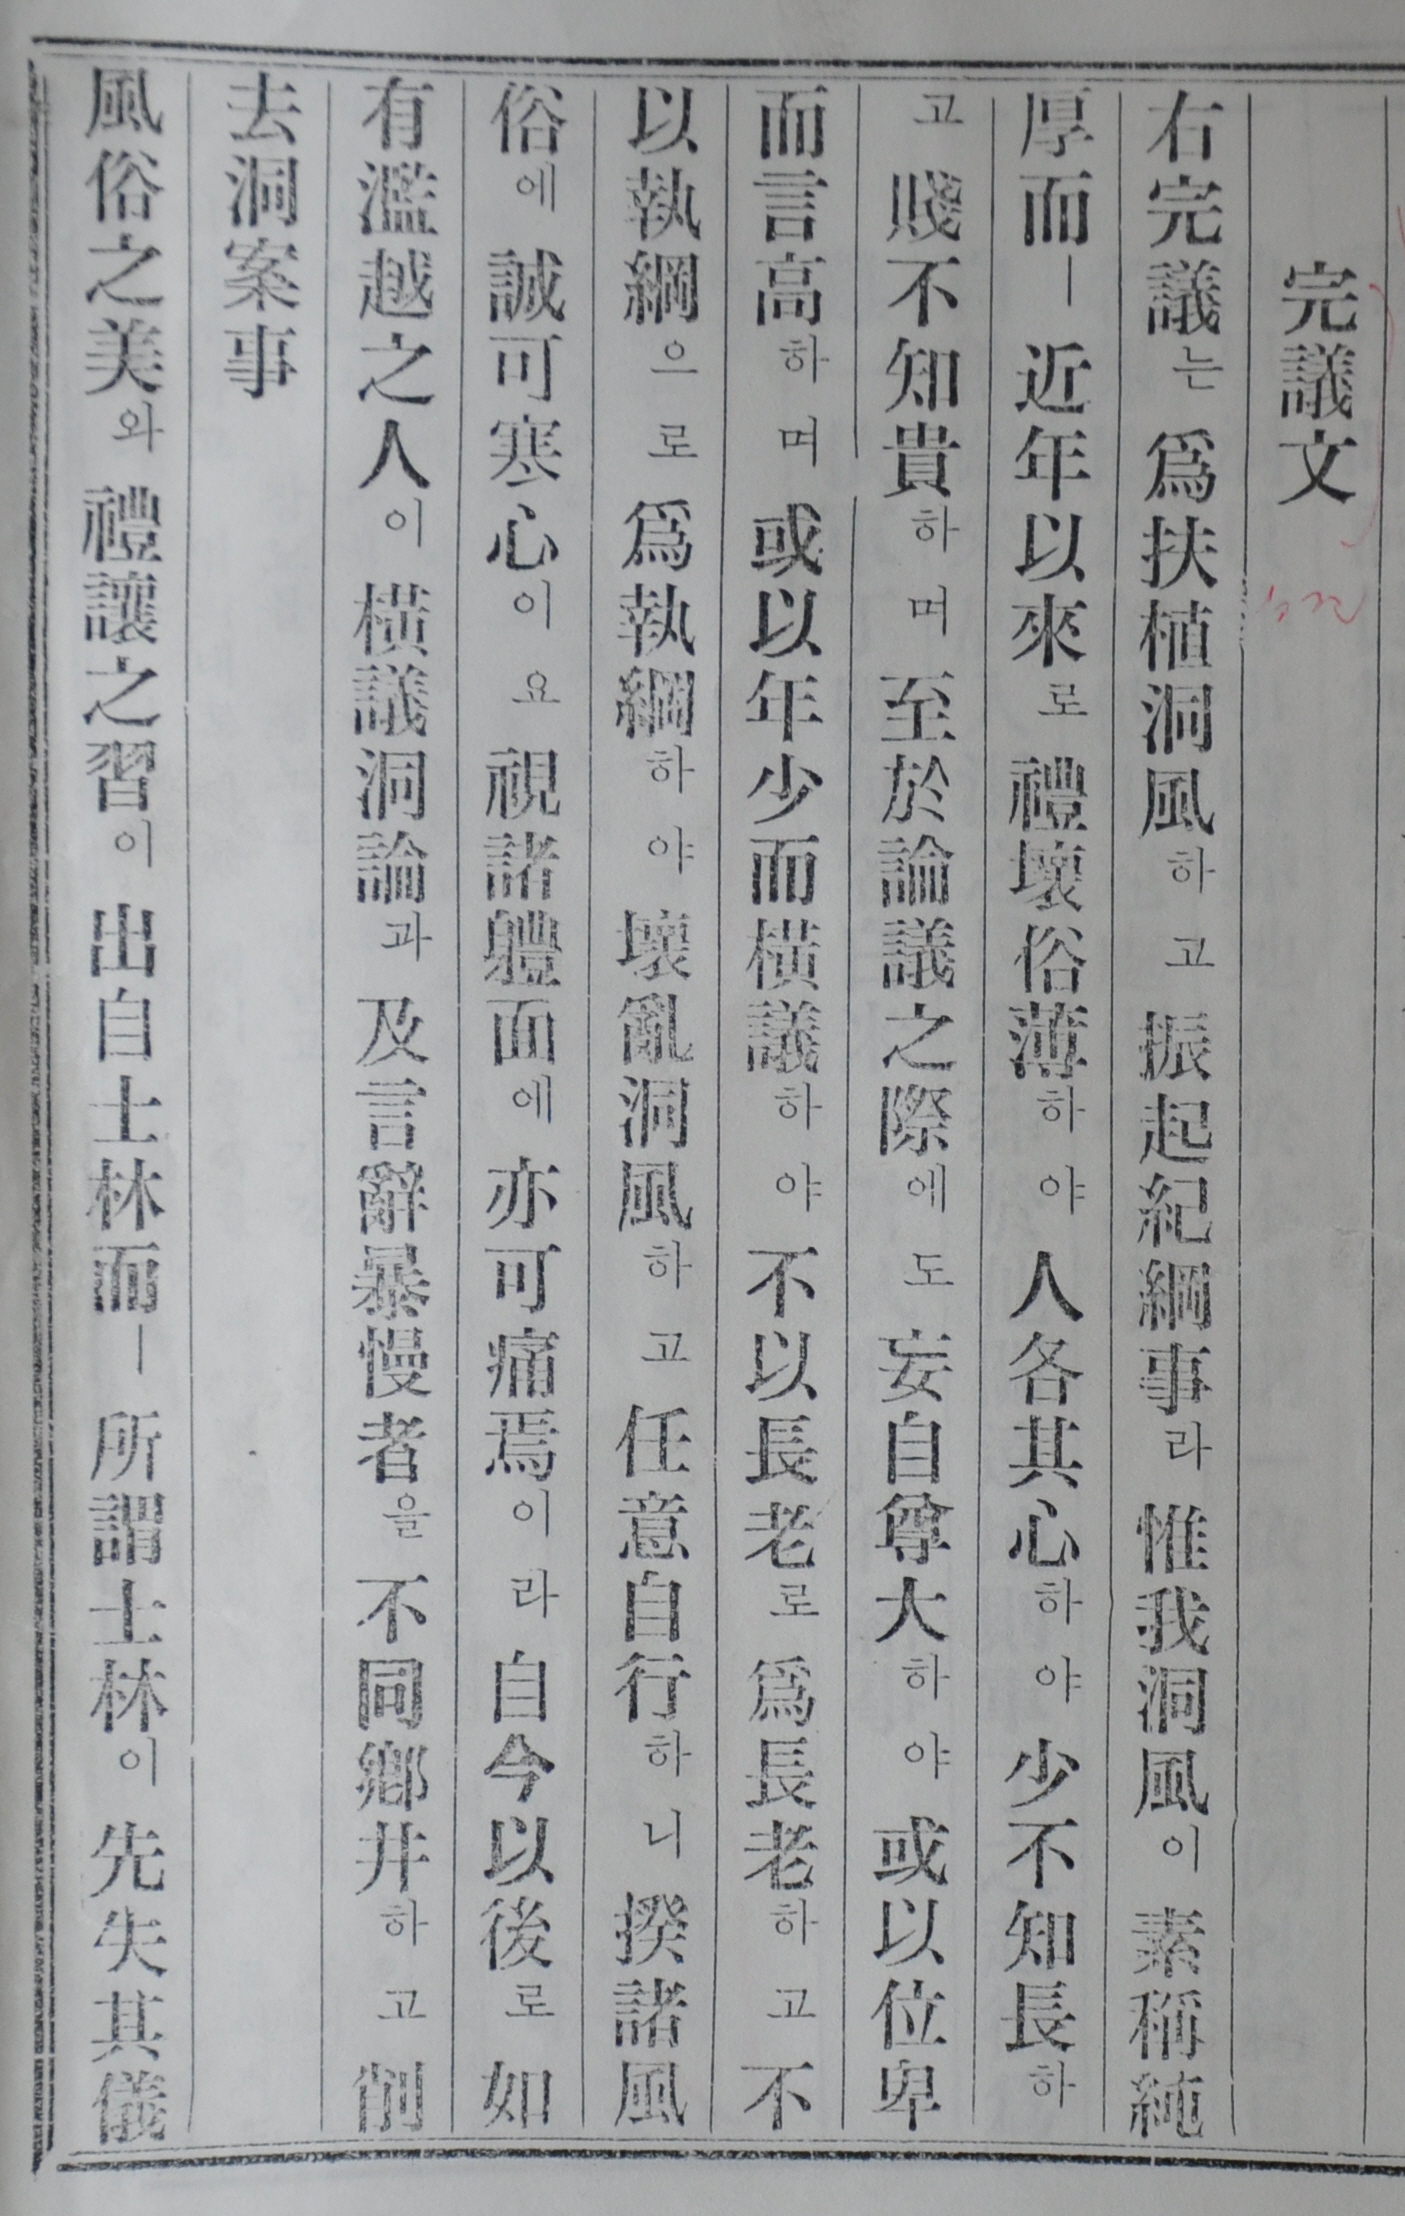 完議文
右完議는 爲扶植洞風하고 振起紀綱事라 惟我洞風이 素稱純
厚而ㅣ 近年以來로 禮壞俗薄하야 人各其心하야 少不知長하
고 賤不知貴하며 至於論議之際에도 妄自尊大하야 或以位卑
而言高하며 或以年少而橫議하야 不以長老로 爲長老하고 不
以執綱으로 爲執綱하야 壞亂洞風하고 任意自行하니 揆諸風
俗에 誠可寒心이요 視諸軆面에 亦可痛焉이라 自今以後로 如
有濫越之人이 橫議洞論과 及言辭暴慢者을 不同鄕井하고 削
去洞案事
風俗之美와 禮讓之習이 出自士林而ㅣ 所謂士林이 先失其儀